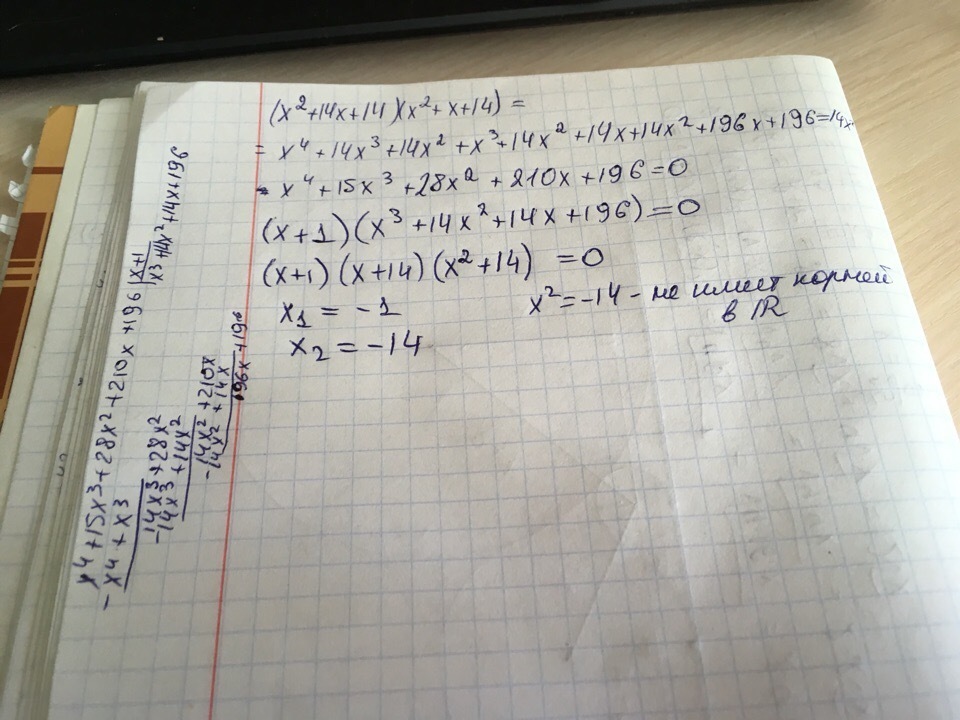 (x²+14x+14)(x²+x+14) =
= x⁴+14x³+14x²+x³+14x²+14x+14x²+196x+196=14x
x⁴+15x³+28x²+210x+196=0
(x+1)(x³+14x²+14x+196)=0
(x+1)(x+14)(x²+14) =0
x₁ = -1
x² = -14 - не имеет корней
в ℝ
x₂ = -14
x⁴+15x³+28x²+210x+196 | x+1
- x⁴+x³
x³+14x²+14x+196
14x³+28x²
-14x³+14x²
14x²+210x
-14x²+14x
196x+196